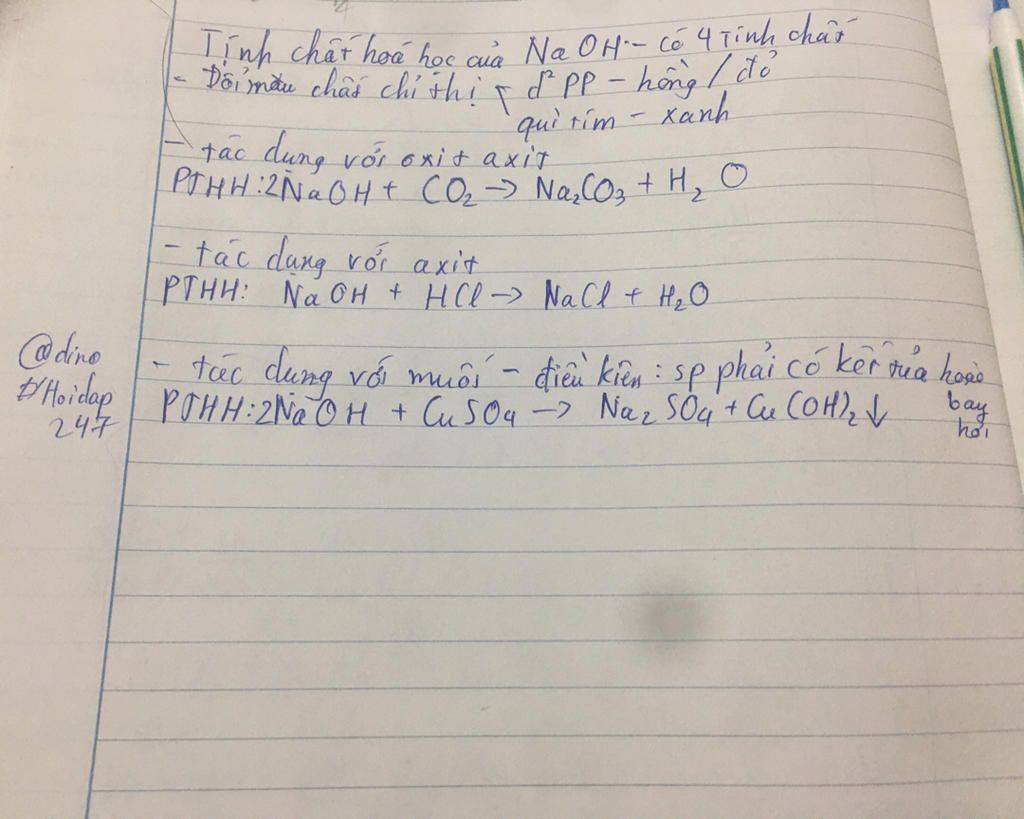 Tính chất hoá học của NaOH - có 4 tính chất
- Đổi màu chất chỉ thị d² PP - hồng / đỏ
quì tím - xanh
- tác dụng với oxit axit
PTHH: 2NaOH + CO₂ → Na₂CO₃ + H₂O
- tác dụng với axit
PTHH: NaOH + HCl → NaCl + H₂O
- tác dụng với muối - điều kiện: sp phải có kết tủa hoặc
bay
hơi
PTHH: 2NaOH + CuSO₄ → Na₂SO₄ + Cu(OH)₂↓
@dino
Hoidap
247